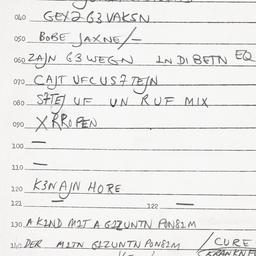 040 GEX263VAKSN
050 BOBE JAXNE/-
060 ZAJN G3WEGN IN DI BETN EQ
070 CAJT UFCUS7TEJN
080 S7TEJ UF UN RUF MIX
090 XRROPEN
100 —
110 —
120 K3NAJN HORE
121 — 122 —
130 A KIND MIT A G1ZUNTN PONSIM
DER MITN G1ZUNTN PONSIM / CURE